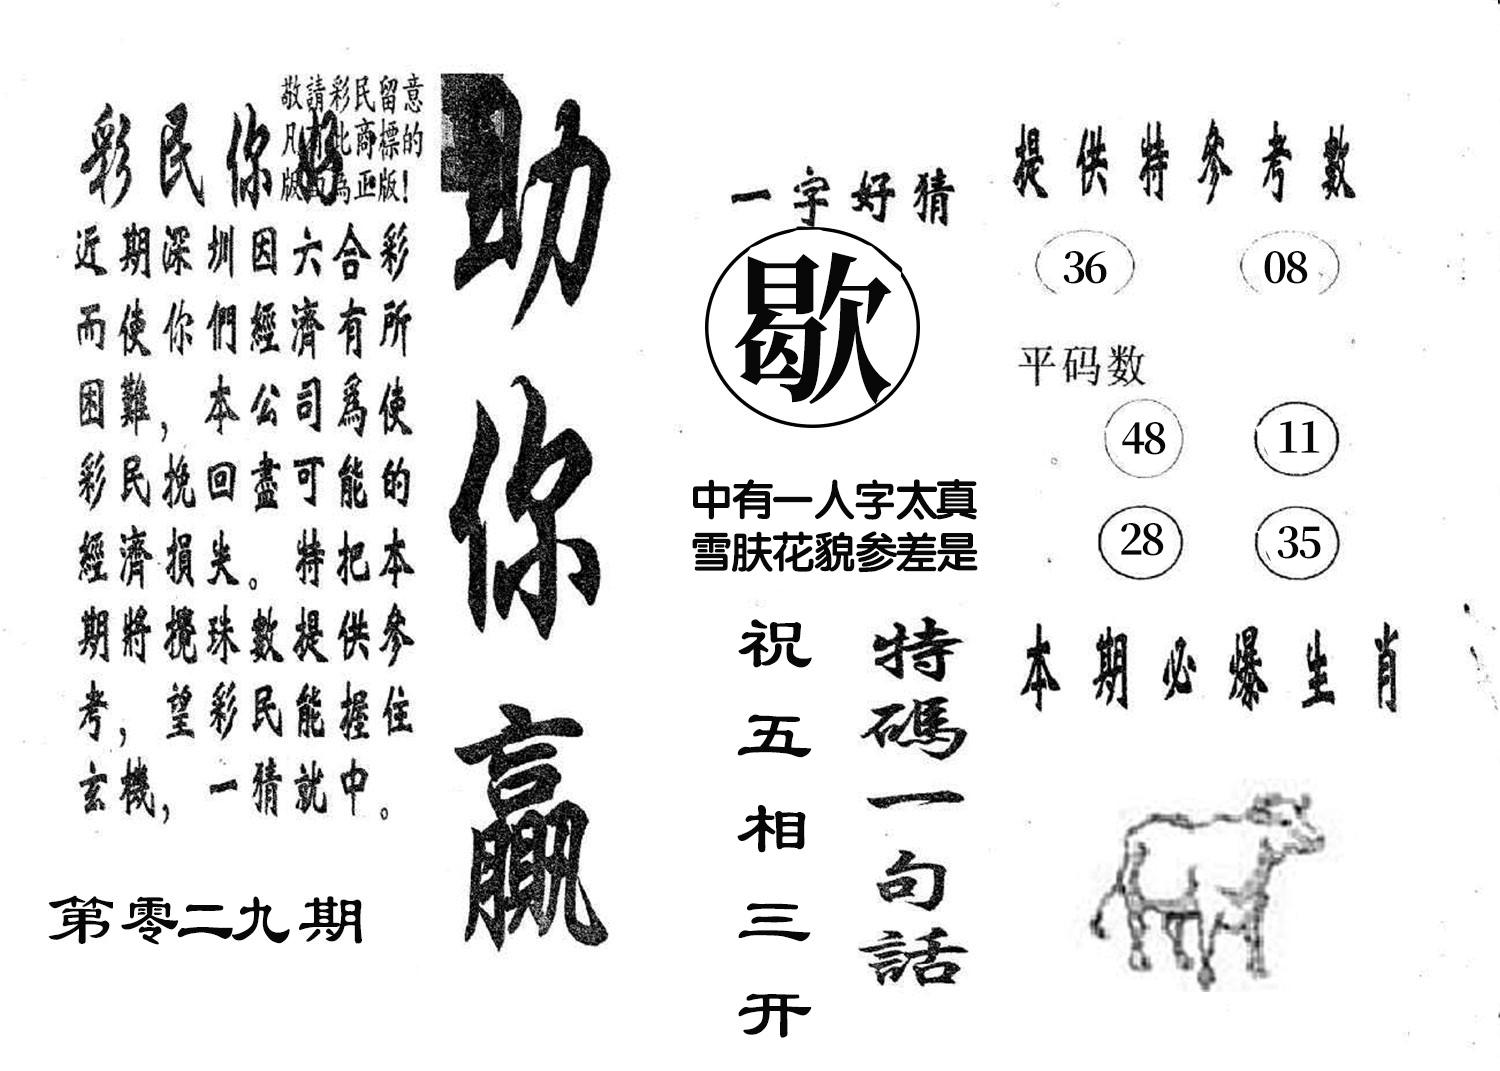 敬請彩民留意
凡有此商標的
版面為正版!
彩民你好
近期深圳因六合彩
而使你們經濟有所
困難，本公司爲使
彩民挽回盡可能的
經濟損失。特把本
期將攪珠數提供參
考，望彩民能握住
玄機，一猜就中。
第零二九期
助你贏
一字好猜
歇
中有一人字太真
雪肤花貌参差是
特碼一句話
祝五相三开
提供特參考數
36 08
平码数
48 11
28 35
本期必爆生肖